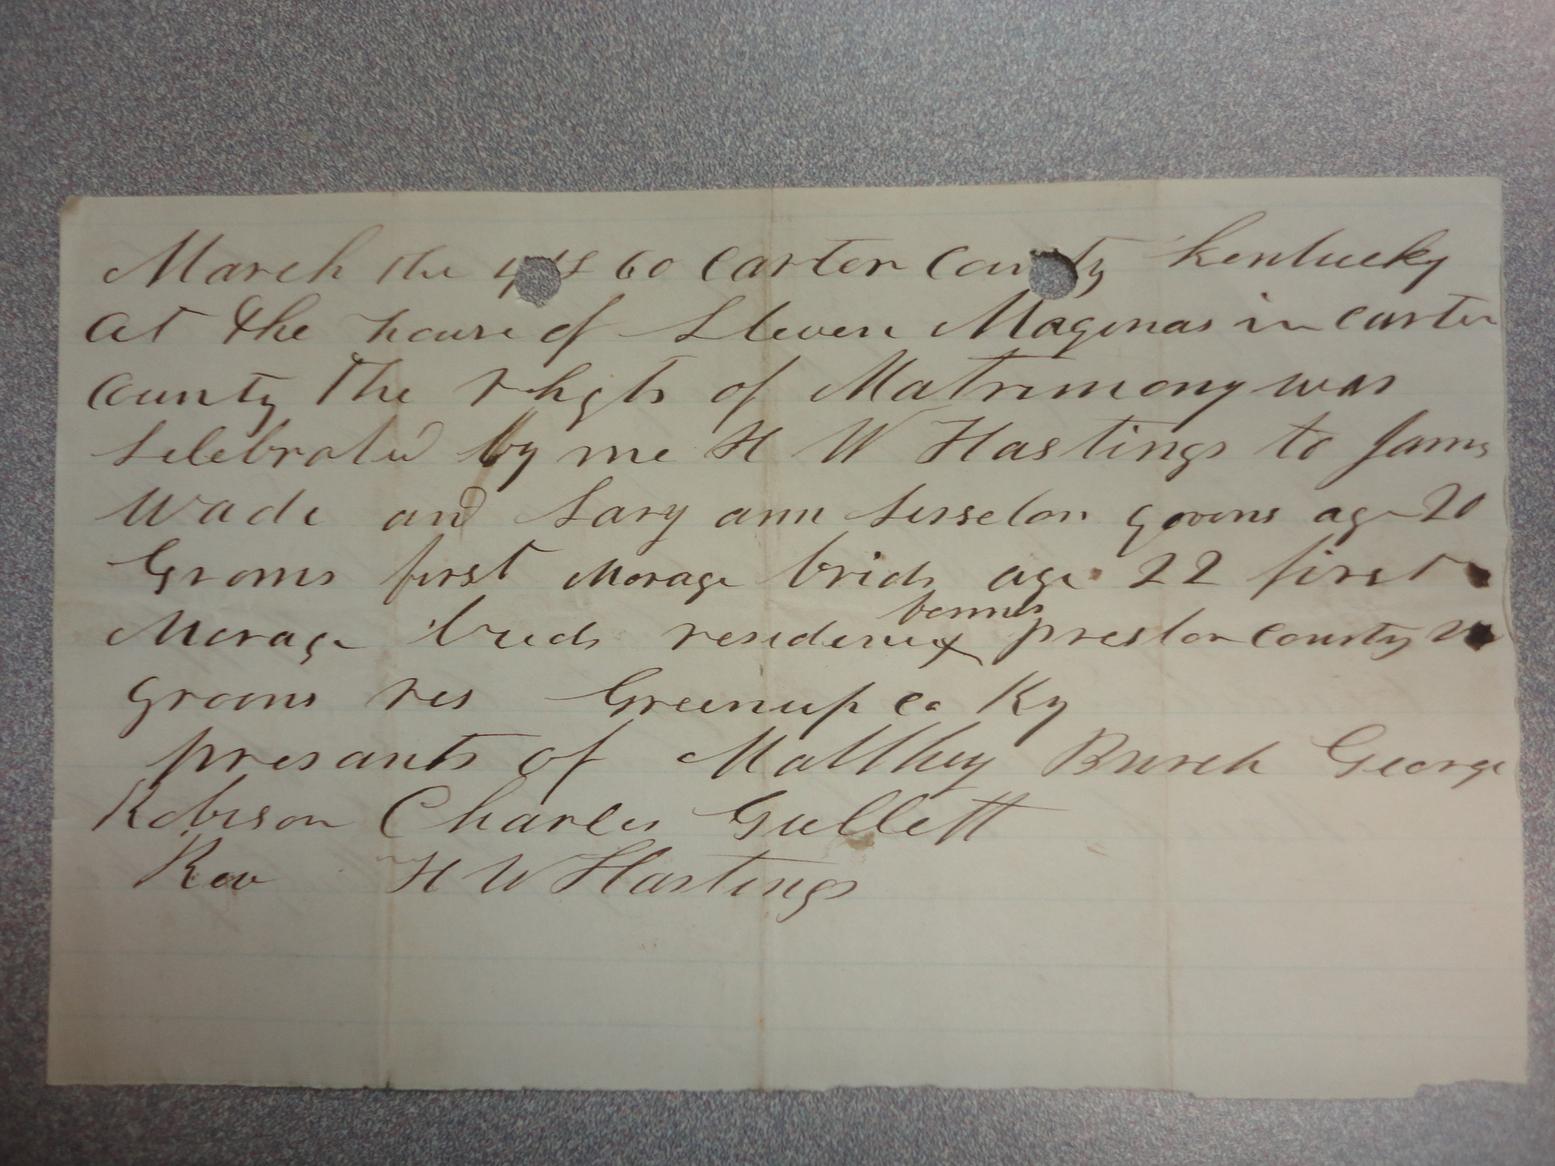 March the 1860 Carter County Kentucky
At the house of Steven Magnas in Carter
County the rhgts of Matrimony was
Selebrated by me H W Hastings to James
Wade and Sary ann Sisselon grooms age 20
Grooms first Morage brids age 22 first
Morage brids residence bornnd preston County
grooms res Greenup co Ky
presants of Matthey Burch George
Robison Charles Gullett
Rev H W Hastings